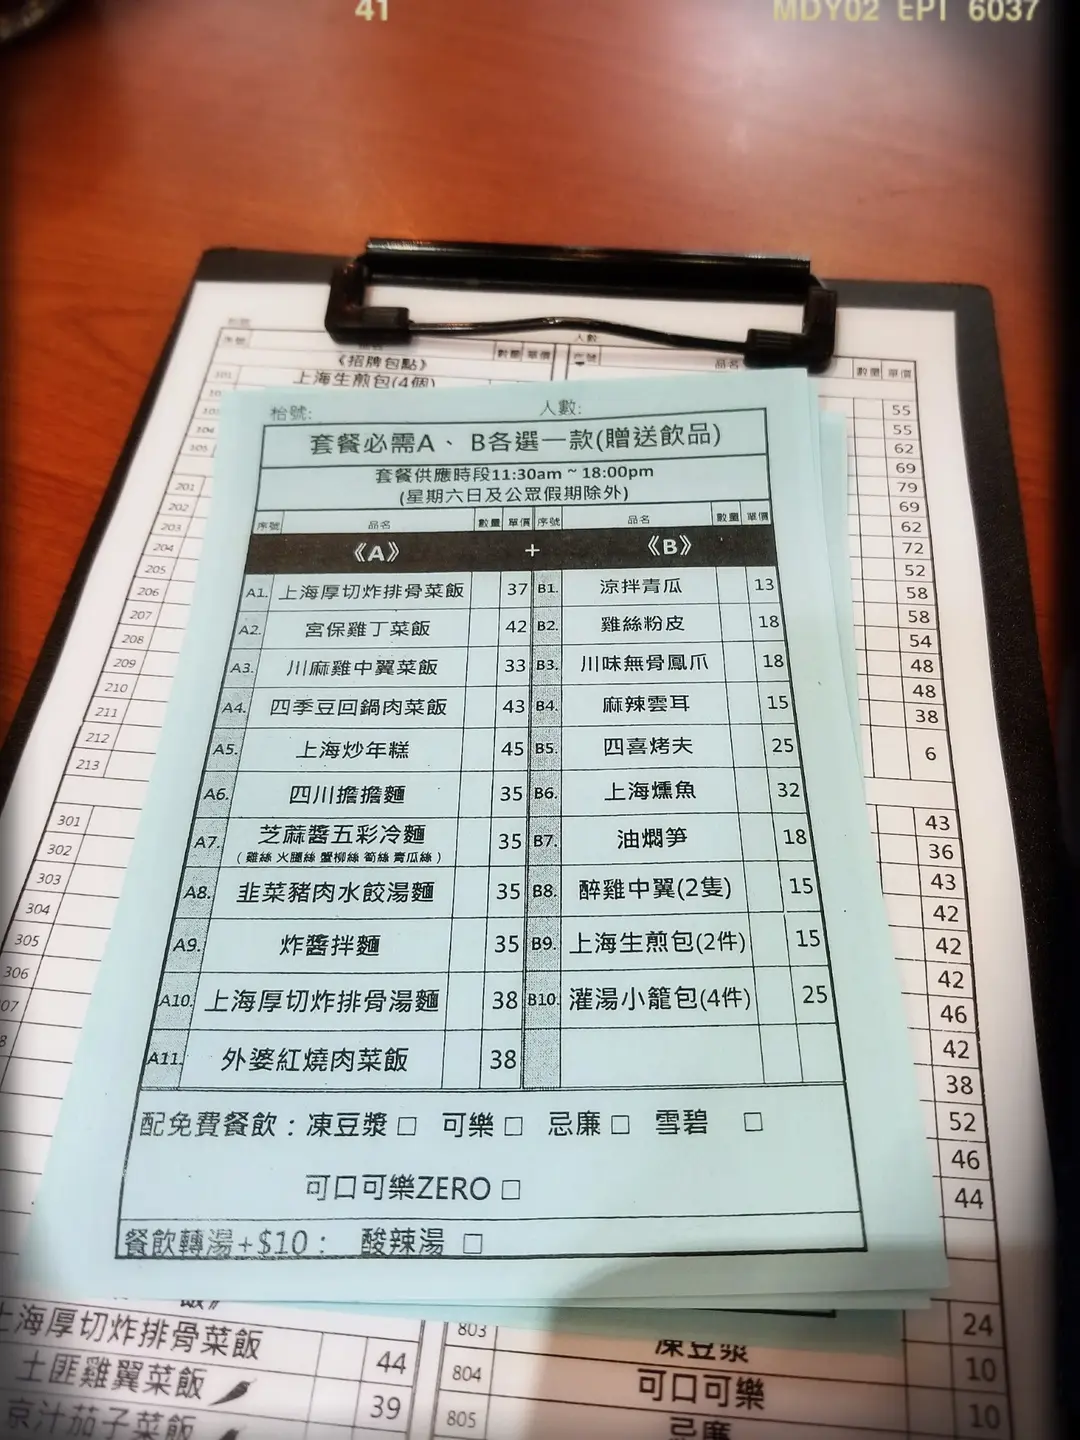 41
MDY02 EPI 6037
人數:
序號 品名 數量 單價 序號 品名 數量 單價
《招牌包點》
101 上海生煎包(4個)
55
55
62
69
201 79
202 69
203 62
204 72
205 52
206 58
207 58
208 54
209 48
210 48
211 38
212
213 6
301 43
302 36
303 43
304 42
305 42
306 42
46
42
38
52
46
44
枱號: 人數:
套餐必需A、 B各選一款(贈送飲品)
套餐供應時段11:30am ~ 18:00pm
(星期六日及公眾假期除外)
序號 品名 數量 單價 序號 品名 數量 單價
《A》 + 《B》
A1. 上海厚切炸排骨菜飯 37 B1. 涼拌青瓜 13
A2. 宮保雞丁菜飯 42 B2. 雞絲粉皮 18
A3. 川麻雞中翼菜飯 33 B3. 川味無骨鳳爪 18
A4. 四季豆回鍋肉菜飯 43 B4. 麻辣雲耳 15
A5. 上海炒年糕 45 B5. 四喜烤夫 25
A6. 四川擔擔麵 35 B6. 上海燻魚 32
A7. 芝蔴醬五彩冷麵 35 B7. 油燜笋 18
(雞絲 火腿絲 蟹柳絲 筍絲 青瓜絲)
A8. 韭菜豬肉水餃湯麵 35 B8. 醉雞中翼(2隻) 15
A9. 炸醬拌麵 35 B9. 上海生煎包(2件) 15
A10. 上海厚切炸排骨湯麵 38 B10. 灌湯小籠包(4件) 25
A11. 外婆紅燒肉菜飯 38
配免費餐飲：凍豆漿 □ 可樂 □ 忌廉 □ 雪碧 □
可口可樂ZERO □
餐飲轉湯+$10： 酸辣湯 □
上海厚切炸排骨菜飯 44
土匪雞翼菜飯 39
京汁茄子菜飯
803 凍豆漿 24
804 可口可樂 10
805 忌廉 10